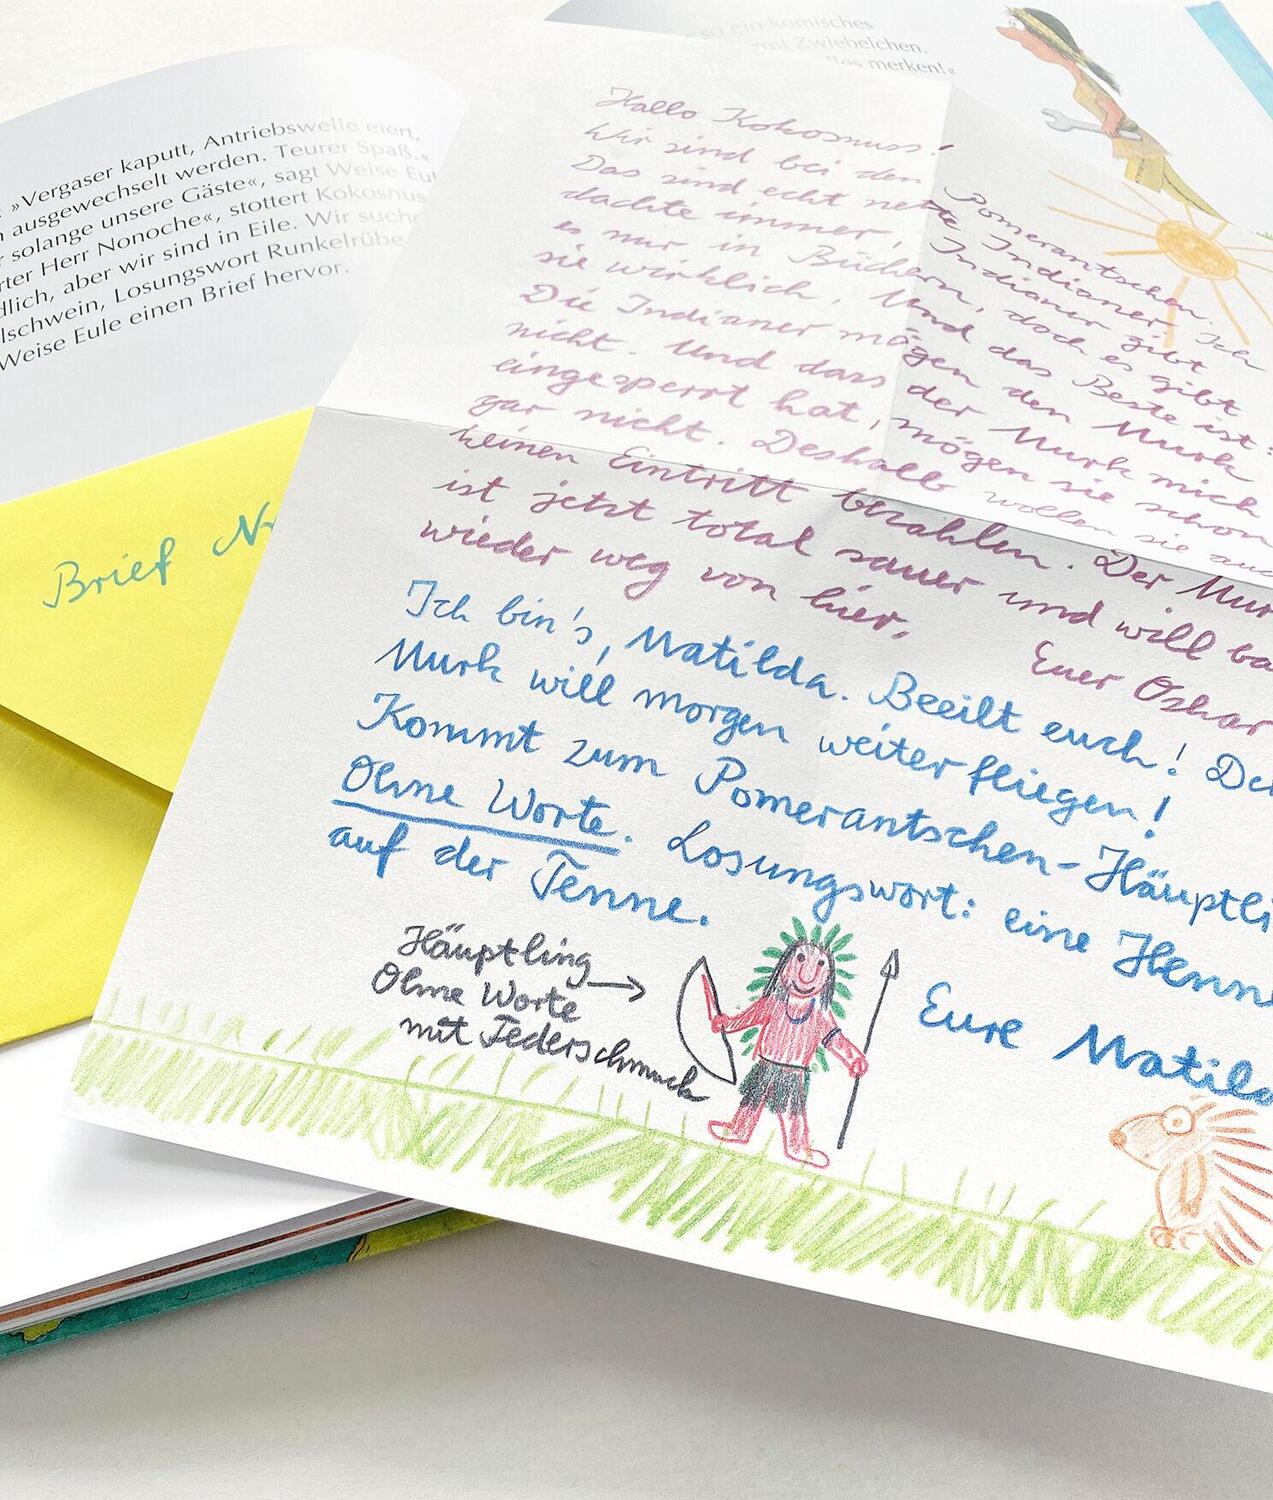 »Vergaser kaputt, Antriebswelle eiert,
ausgewechselt werden. Teurer Spaß.«
solange unsere Gäste«, sagt Weise Eul
rter Herr Nonoche«, stottert Kokosnus
dlich, aber wir sind in Eile. Wir suche
lschwein, Losungswort Runkelrübe
Weise Eule einen Brief hervor.
so ein komisches
nt Zwiebelchen.
lles merken!«
Brief N
Hallo Kokosnuss!
Wir sind bei den Pomerantschen.
Das sind echt nette Indianer. Ich
dachte immer, Indianer gibt
es nur in Büchern, doch es gibt
sie wirklich. Und das Beste ist:
Die Indianer mögen den Murk
nicht. Und dass der Murk mich
eingesperrt hat, mögen sie schon
gar nicht. Deshalb wollen sie auch
keinen Eintritt bezahlen. Der Mur
ist jetzt total sauer und will ba
wieder weg von hier.
Euer Oskar
Ich bin's, Matilda. Beeilt euch! De
Murk will morgen weiterfliegen!
Kommt zum Pomerantschen-Häuptli
Ohne Worte. Losungswort: eine Henne
auf der Tenne.
Eure Matilda
Häuptling
Ohne Worte
mit Federschmuck